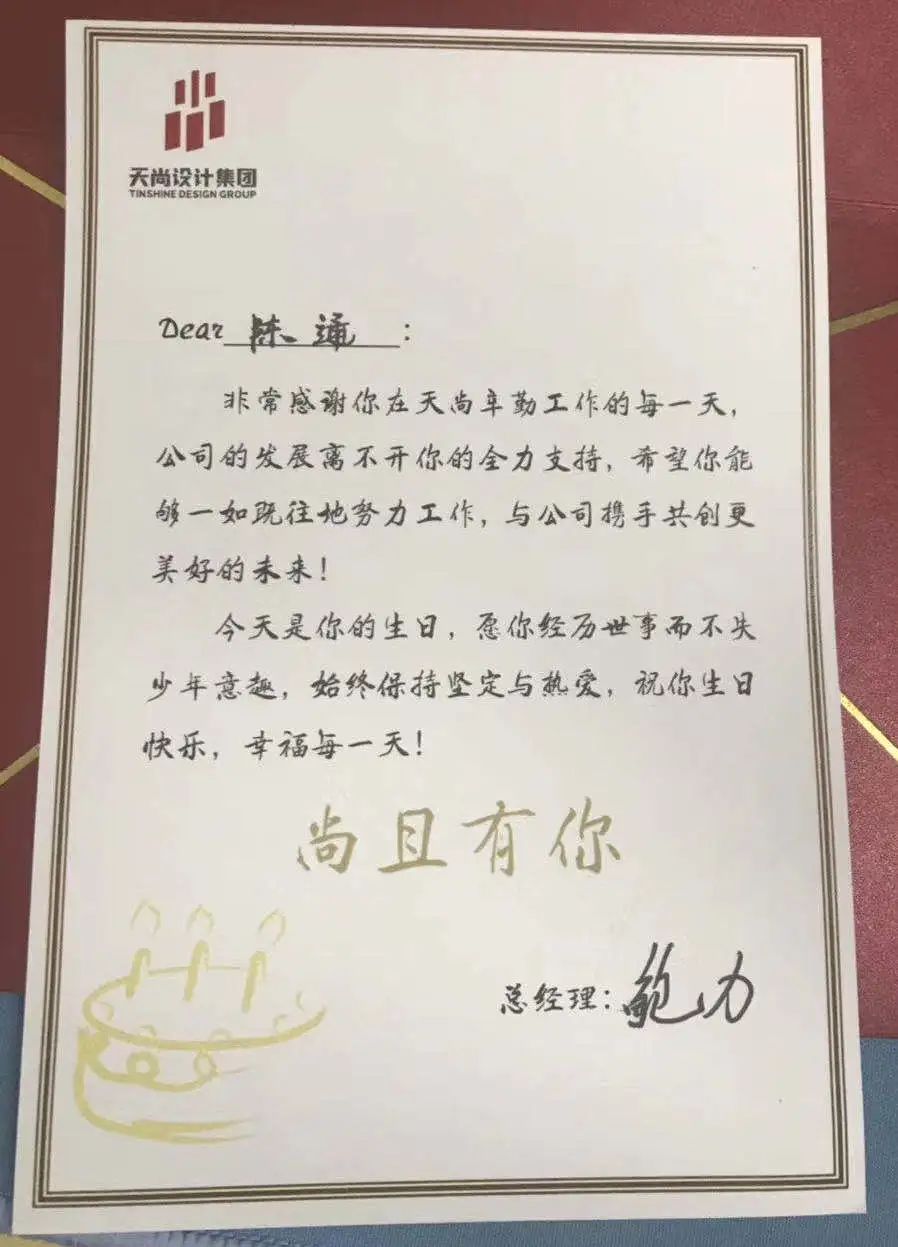 天尚设计集团
TINSHINE DESIGN GROUP
Dear 陈通：
非常感谢你在天尚辛勤工作的每一天，
公司的发展离不开你的全力支持，希望你能
够一如既往地努力工作，与公司携手共创更
美好的未来！
今天是你的生日，愿你经历世事而不失
少年意趣，始终保持坚定与热爱，祝你生日
快乐，幸福每一天！
尚且有你
总经理：鲍力